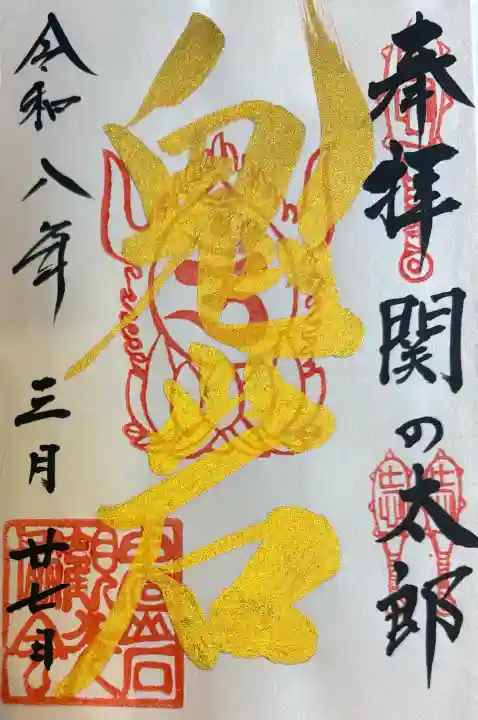 奉拝 関の太郎
鬼岩
令和八年 三月 廿七日